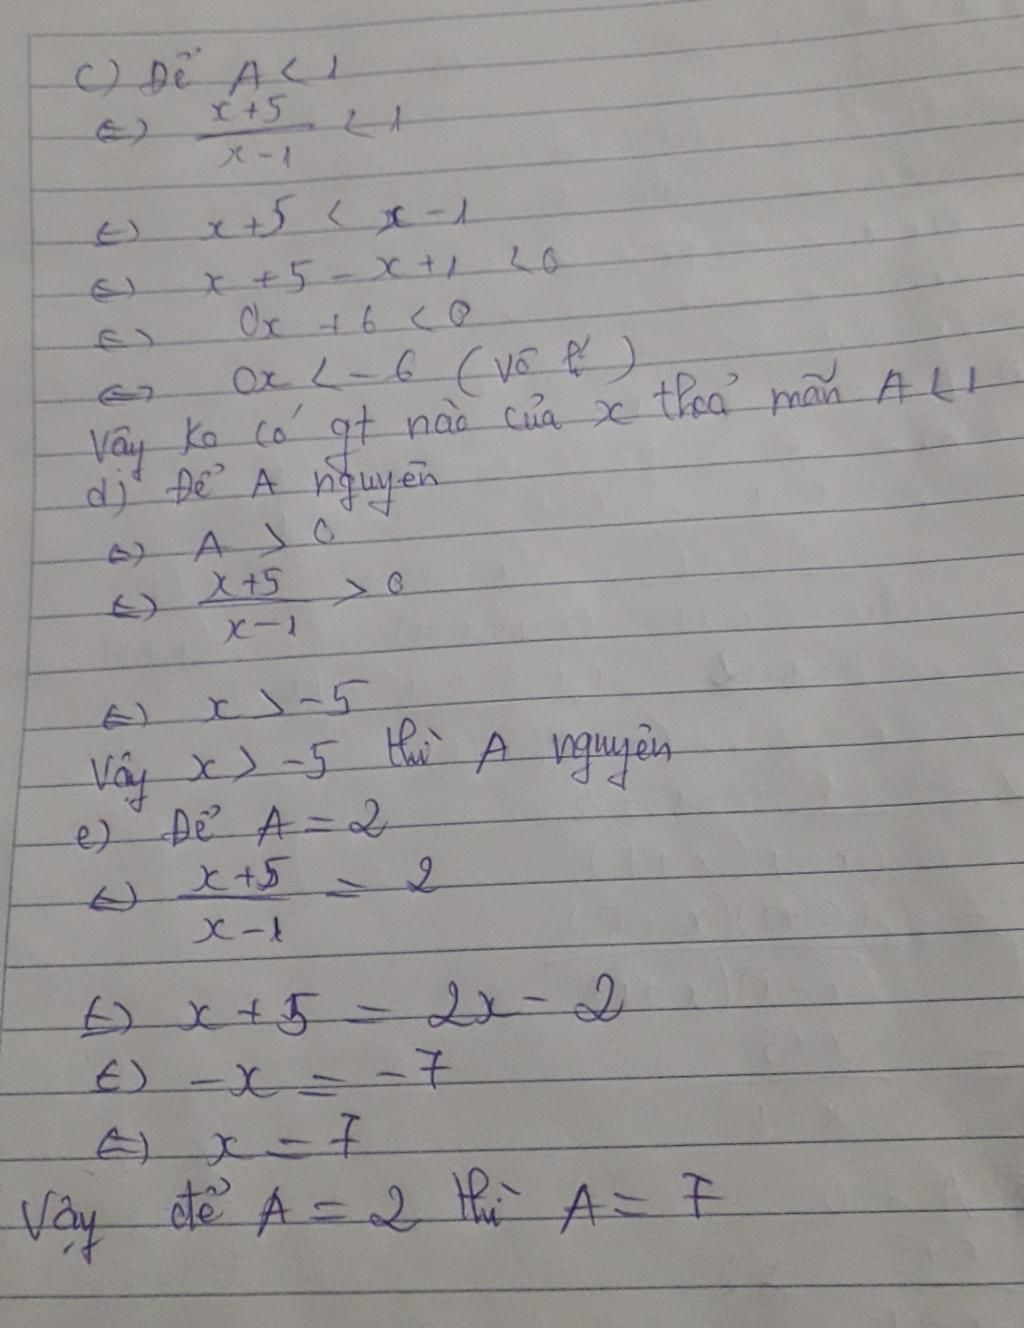 c) Để A < 1
<=> x+5 / x-1 < 1
<=> x+5 < x-1
<=> x+5-x+1 < 0
<=> 0x + 6 < 0
<=> 0x < -6 (vô lí)
Vậy ko có gt nào của x thoả mãn A < 1
d) Để A nguyên
<=> A > 0
<=> x+5 / x-1 > 0
<=> x > -5
Vậy x > -5 thì A nguyên
e) Để A = 2
<=> x+5 / x-1 = 2
<=> x+5 = 2x-2
<=> -x = -7
<=> x = 7
Vậy để A = 2 thì A = 7